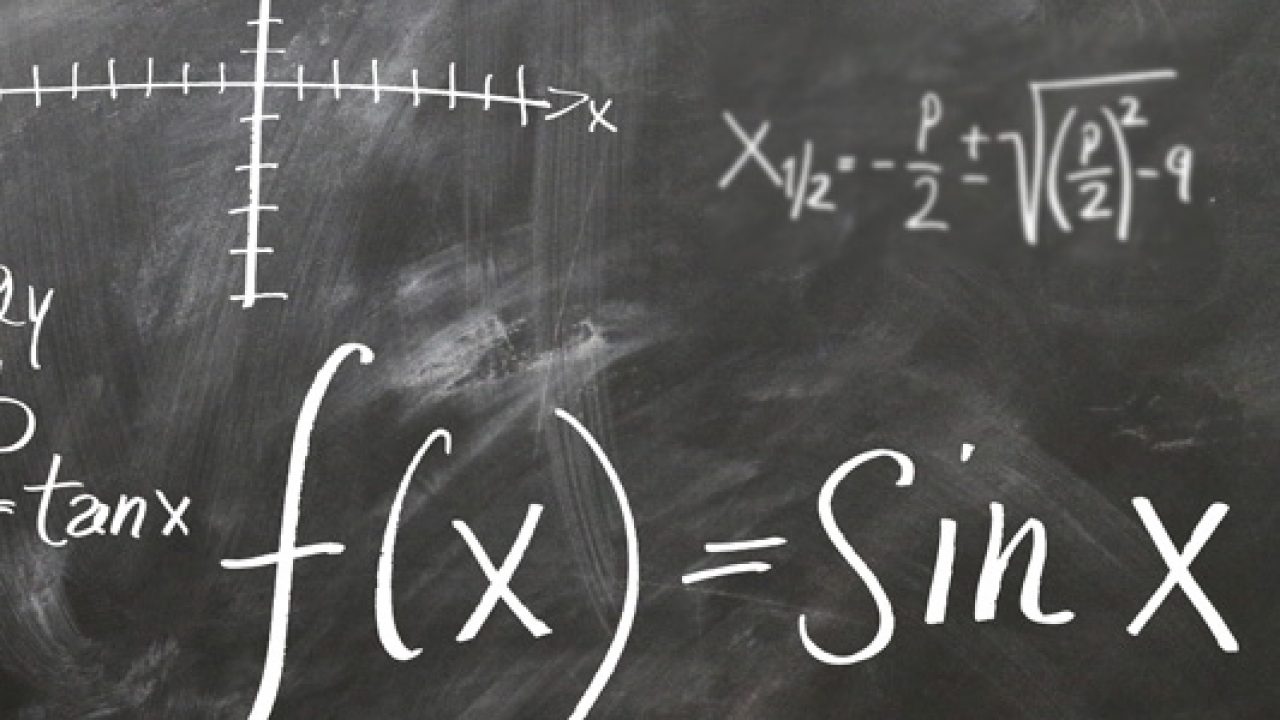 x
X1/2 = - p/2 ± √((p/2)² - q
y
= tan x
f(x) = sin x